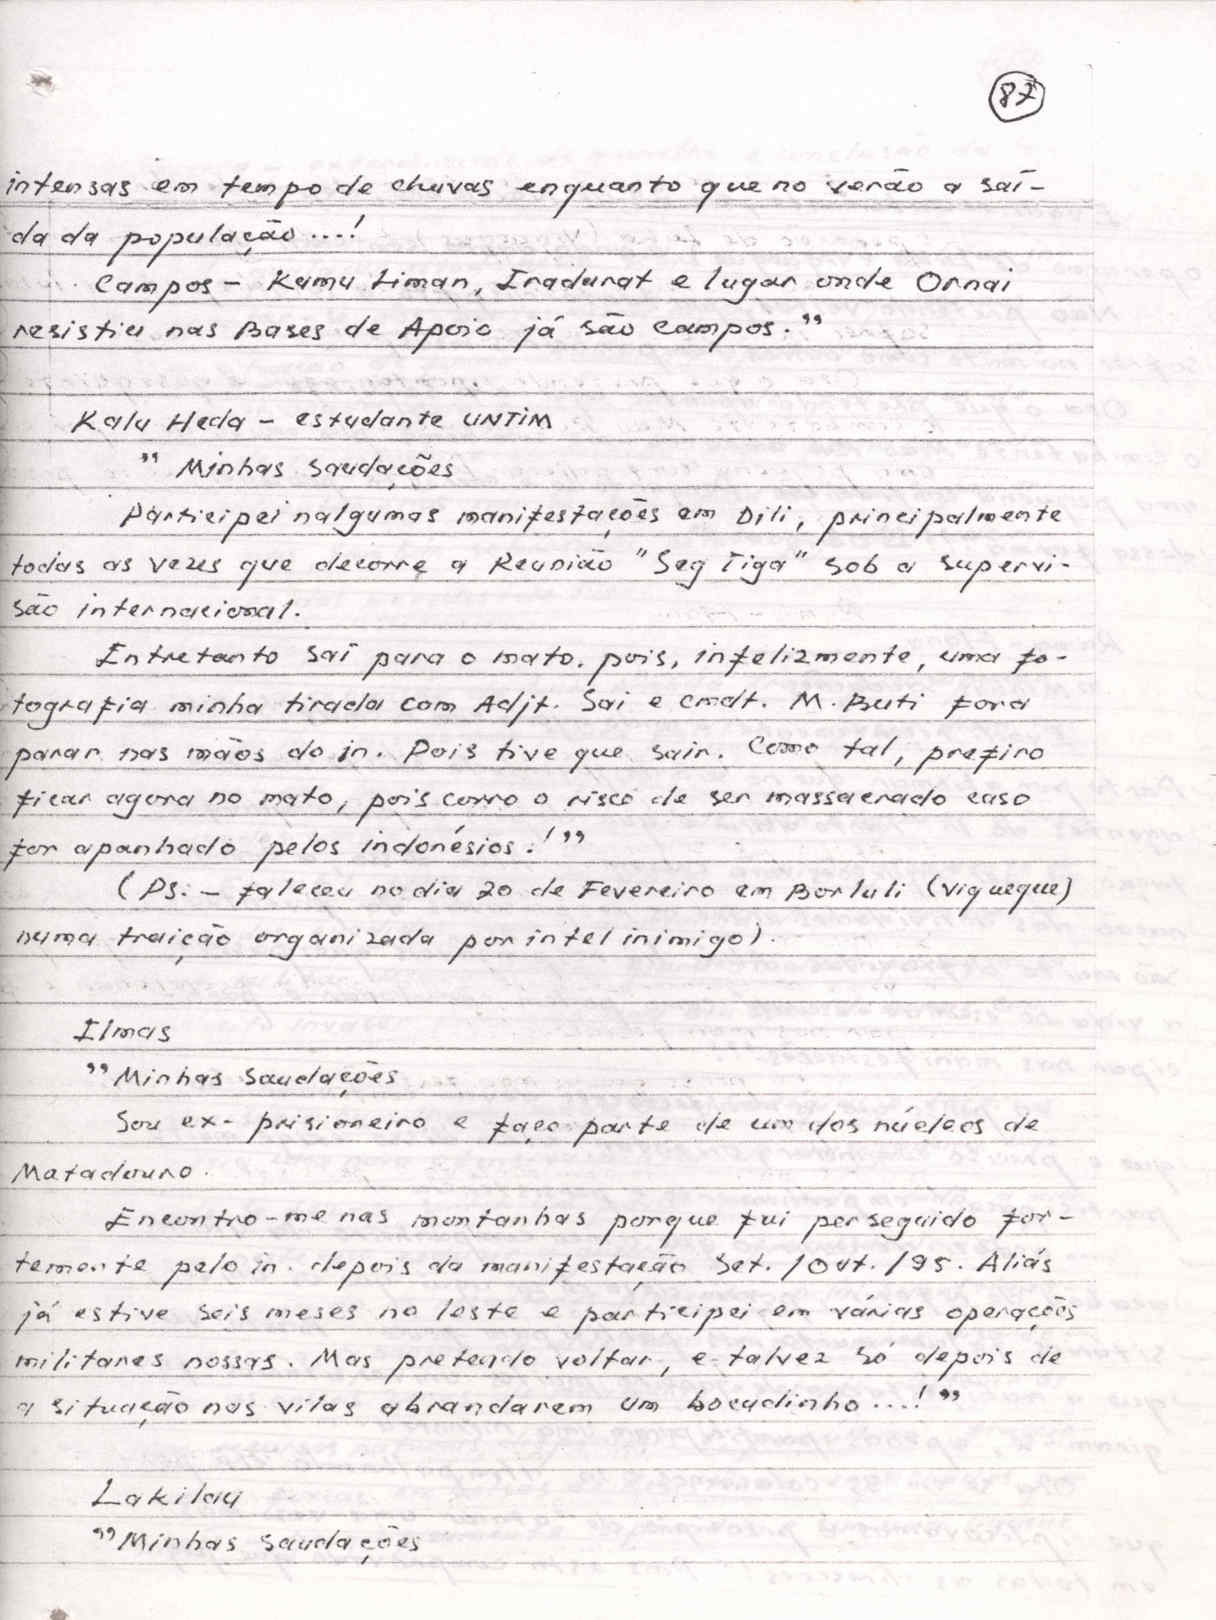 87
intensas em tempo de chuvas enquanto que no verão a saí-
da da população...!
Campos - Kamu Liman, Iradarat e lugar onde Ornai
resistiu nas Bases de Apoio já são campos."
Kalu Heda - estudante UNTIM
" Minhas saudações
Participei nalgumas manifestações em Dili, principalmente
todas as vezes que decorre a Reunião "Seg Tiga" sob a supervi-
são internacional.
Entretanto saí para o mato. pois, infelizmente, uma fo-
tografia minha tirada com Adjt. Sai e cmdt. M. Buti fora
parar nas mãos do in. Pois tive que sair. Como tal, prefiro
ficar agora no mato, pois corro o risco de ser massacrado caso
for apanhado pelos indonésios.!"
(Ps. - faleceu no dia 20 de Fevereiro em Borluli (viqueque)
numa traição organizada por intel inimigo).
Ilmas
"Minhas saudações
Sou ex-prisioneiro e faço parte de um dos núcleos de
Matadouro.
Encontro-me nas montanhas porque fui perseguido for-
temente pelo in. depois da manifestação Set./Out./95. Aliás
já estive seis meses no leste e participei em várias operações
militares nossas. Mas pretendo voltar, e talvez só depois de
a situação nas vilas abrandarem um bocadinho...!"
Lakilay
"Minhas saudações